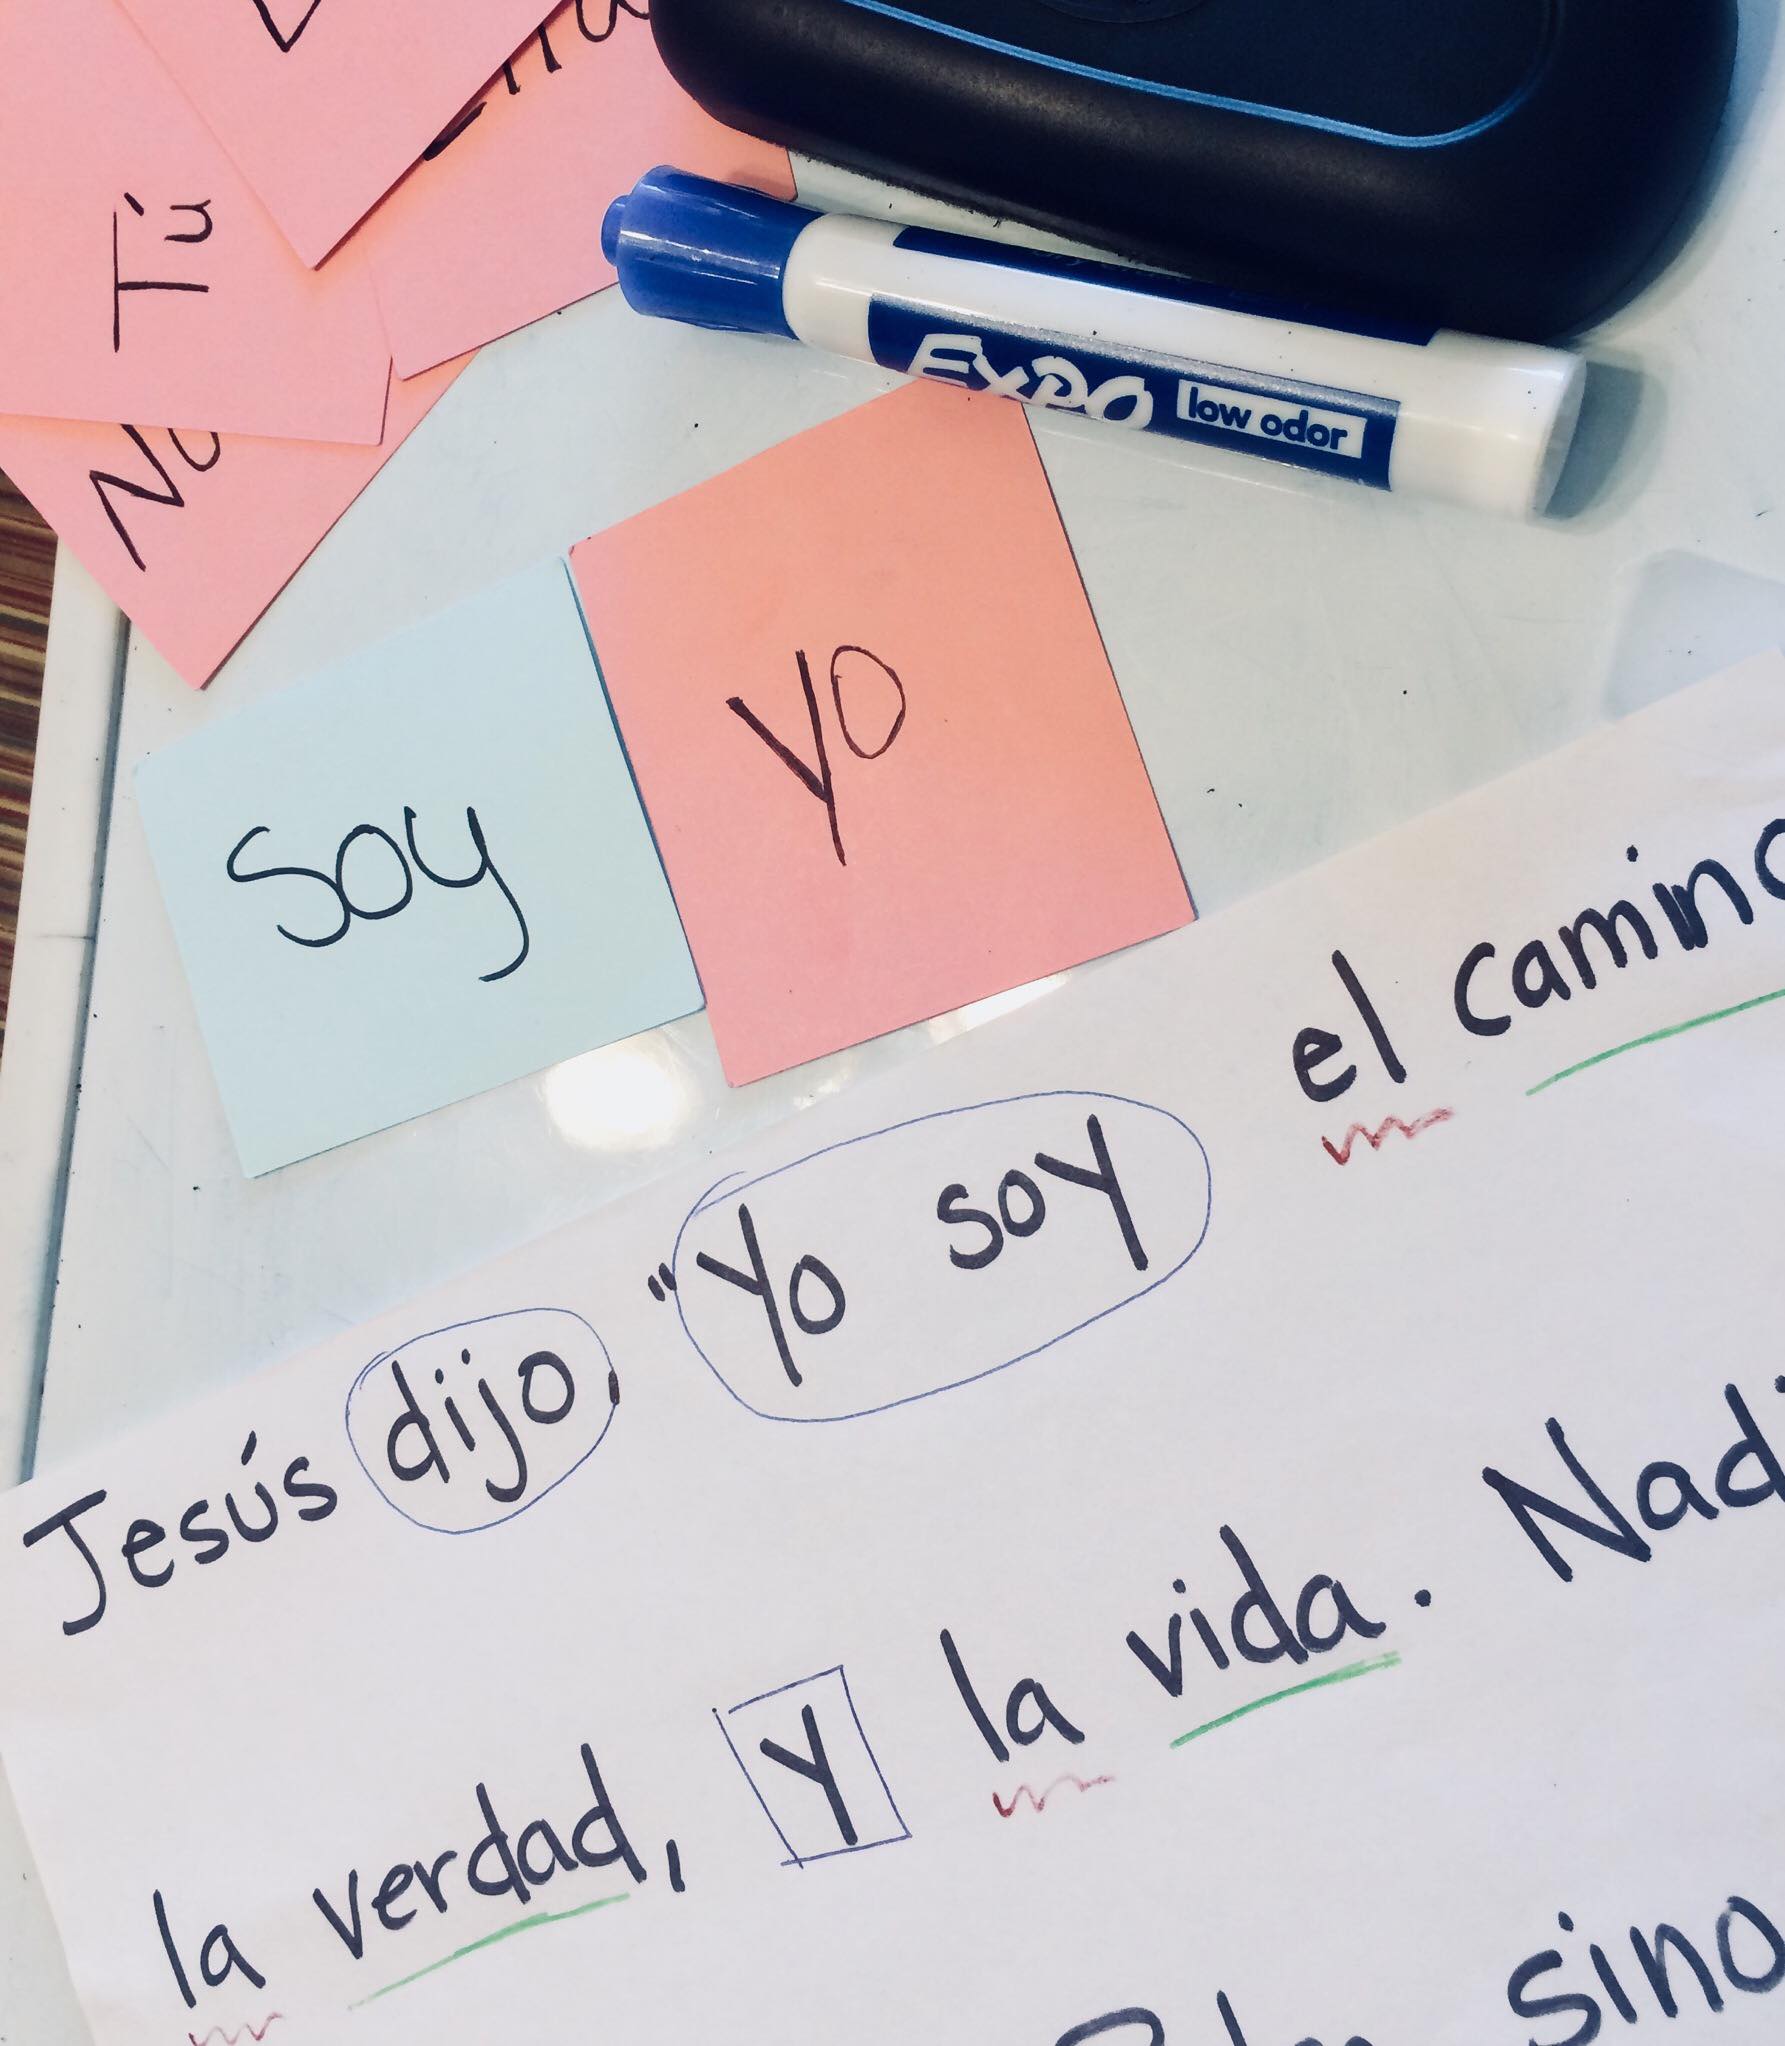 Tú
EXPO low odor
yo
soy
Jesús dijo, "Yo soy el camino
la verdad, y la vida.
sino